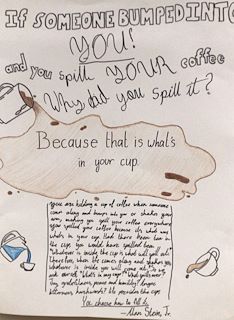 If SOMEONE BUMPED INTO
YOU!
and you spill YOUR coffee
Why did you spill it?
Because that is what's
in your cup.
You are holding a cup of coffee when someone
comes along and bumps into you or shakes your
arm, making you spill your coffee everywhere
You spilled your coffee because it's what was
in your cup. Had there been tea in
the cup, you would have spilled tea.
Whatever is inside the cup is what will spill out.
Therefore, when life comes along and shakes you
whatever is inside you will come out.
"What's in my cup?"
Joy, gratefulness, peace and humility?
bitterness, Life provides the cup.
You choose how to fill it.
- Alan Stein, Jr.